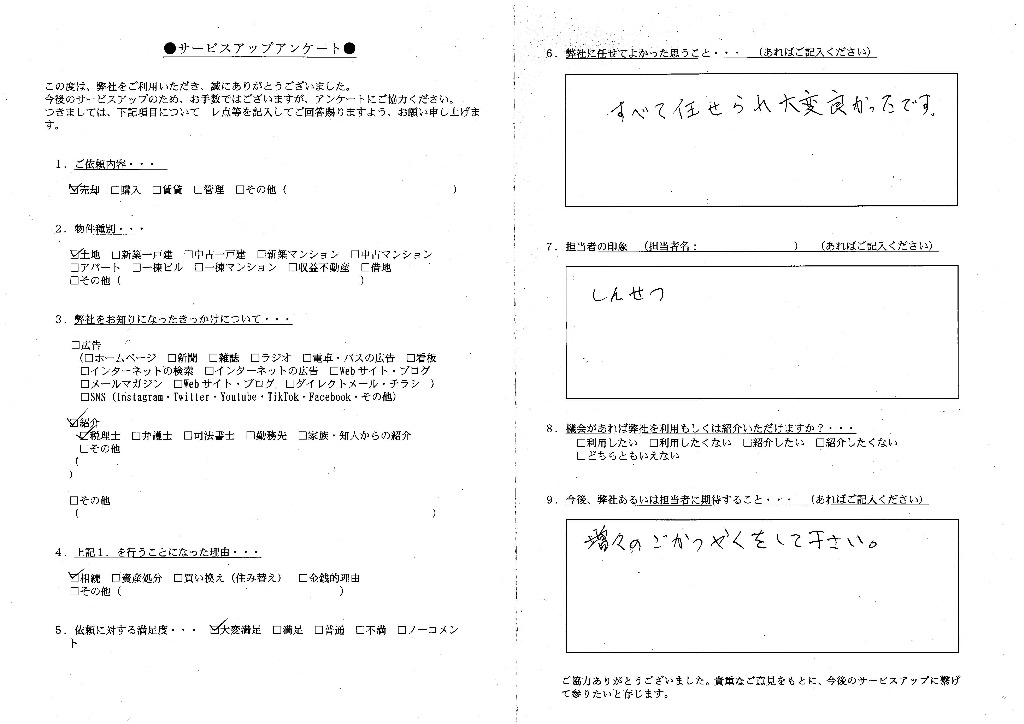 ●サービスアップアンケート●
この度は、弊社をご利用いただき、誠にありがとうございました。
今後のサービスアップのため、お手数ではございますが、アンケートにご協力ください。
つきましては、下記項目について レ点等を記入してご回答賜りますよう、お願い申し上げま
す。
1．ご依頼内容・・・
☑売却 □購入 □賃貸 □管理 □その他（ ）
2．物件種別・・・
☑土地 □新築一戸建 □中古一戸建 □新築マンション □中古マンション
□アパート □一棟ビル □一棟マンション □収益不動産 □借地
□その他（ ）
3．弊社をお知りになったきっかけについて・・・
□広告
（□ホームページ □新聞 □雑誌 □ラジオ □電車・バスの広告 □看板
□インターネットの検索 □インターネットの広告 □Webサイト・ブログ
□メールマガジン □Webサイト・ブログ □ダイレクトメール・チラシ ）
□SNS（Instagram・Twitter・Youtube・TikTok・Facebook・その他）
☑紹介
☑税理士 □弁護士 □司法書士 □勤務先 □家族・知人からの紹介
□その他
（
）
□その他
（ ）
4．上記1．を行うことになった理由・・・
☑相続 □資産処分 □買い換え（住み替え） □金銭的理由
□その他（ ）
5．依頼に対する満足度・・・ ☑大変満足 □満足 □普通 □不満 □ノーコメン
ト
6．弊社に任せてよかった思うこと・・・ （あればご記入ください）
すべて任せられ大変良かったです。
7．担当者の印象 （担当者名： ） （あればご記入ください）
しんせつ
8．機会があれば弊社を利用もしくは紹介いただけますか？・・・
□利用したい □利用したくない □紹介したい □紹介したくない
□どちらともいえない
9．今後、弊社あるいは担当者に期待すること・・・ （あればご記入ください）
増々のごかつやくをして下さい。
ご協力ありがとうございました。貴重なご意見をもとに、今後のサービスアップに繋げ
て参りたいと存じます。